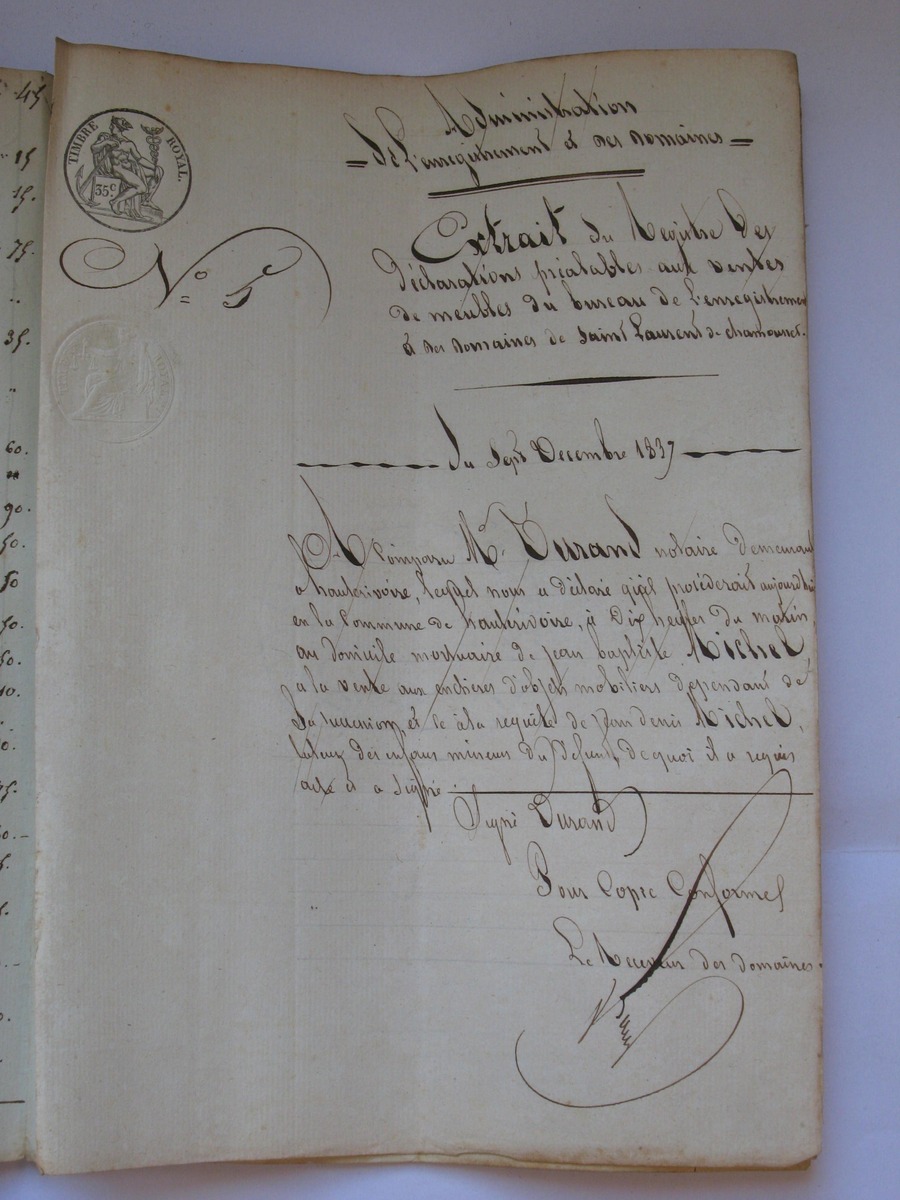 45
15
15.
75.
35.
60.
90.
50.
50
50.
50.
10.
TIMBRE ROYAL.
35c
N° 5
Administration
de l'enregistrement & des domaines
Extrait du Registre des
déclarations préalables aux ventes
de meubles du bureau de l'enregistrement
& des domaines de Saint Laurent de chamousset.
du Sept Decembre 1837
A Comparu Me. Durand notaire demeurant
a hauterivoire, lequel nous a déclaré qu'il procéderait aujourd'hui
en la Commune de hauterivoire, à Dix heures du matin
au domicile mortuaire de jean baptiste Michel
a la vente aux enchères d'objets mobiliers dépendant de
Sa succession, et ce à la requête de jean denis Michel,
tuteur des enfans mineurs du défunt, de quoi il a requis
acte & a Signé
Signé Durand
Pour Copie Conforme
Le Receveur des domaines.